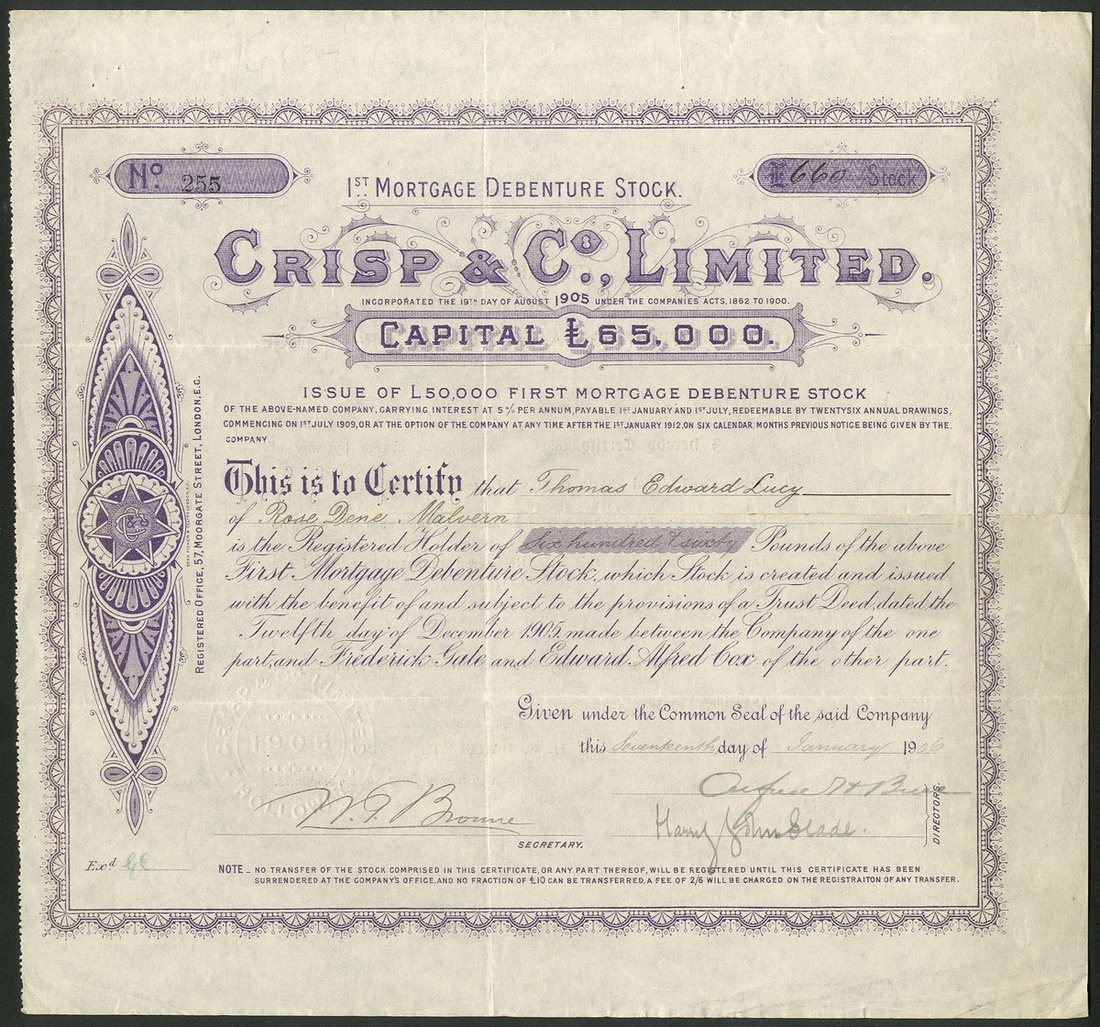 No. 255
1ST MORTGAGE DEBENTURE STOCK.
£660 Stock
CRISP & Co., LIMITED.
INCORPORATED THE 19TH DAY OF AUGUST 1905 UNDER THE COMPANIES ACTS, 1862 TO 1900.
CAPITAL £65,000.
ISSUE OF £50,000 FIRST MORTGAGE DEBENTURE STOCK
OF THE ABOVE-NAMED COMPANY, CARRYING INTEREST AT 5% PER ANNUM, PAYABLE 1ST JANUARY AND 1ST JULY, REDEEMABLE BY TWENTYSIX ANNUAL DRAWINGS,
COMMENCING ON 1ST JULY 1909, OR AT THE OPTION OF THE COMPANY AT ANY TIME AFTER THE 1ST JANUARY 1912, ON SIX CALENDAR MONTHS PREVIOUS NOTICE BEING GIVEN BY THE
COMPANY
This is to Certify that Thomas Edward Lucy
of Rose Dene Malvern
is the Registered Holder of Six hundred & sixty Pounds of the above
First Mortgage Debenture Stock, which Stock is created and issued
with the benefit of and subject to the provisions of a Trust Deed, dated the
Twelfth day of December 1905, made between the Company of the one
part, and Frederick Gale and Edward Alfred Cox of the other part.
Given under the Common Seal of the said Company
this Seventeenth day of January 1906
REGISTERED OFFICE, 57, MOORGATE STREET, LONDON, E.C.
C & Co
1905
Alfred H
Harry John Slade.
DIRECTORS.
W. T. Browne
SECRETARY.
Exd
NOTE _ NO TRANSFER OF THE STOCK COMPRISED IN THIS CERTIFICATE, OR ANY PART THEREOF, WILL BE REGISTERED UNTIL THIS CERTIFICATE HAS BEEN
SURRENDERED AT THE COMPANY'S OFFICE, AND NO FRACTION OF £10 CAN BE TRANSFERRED, A FEE OF 2/6 WILL BE CHARGED ON THE REGISTRAITON OF ANY TRANSFER.